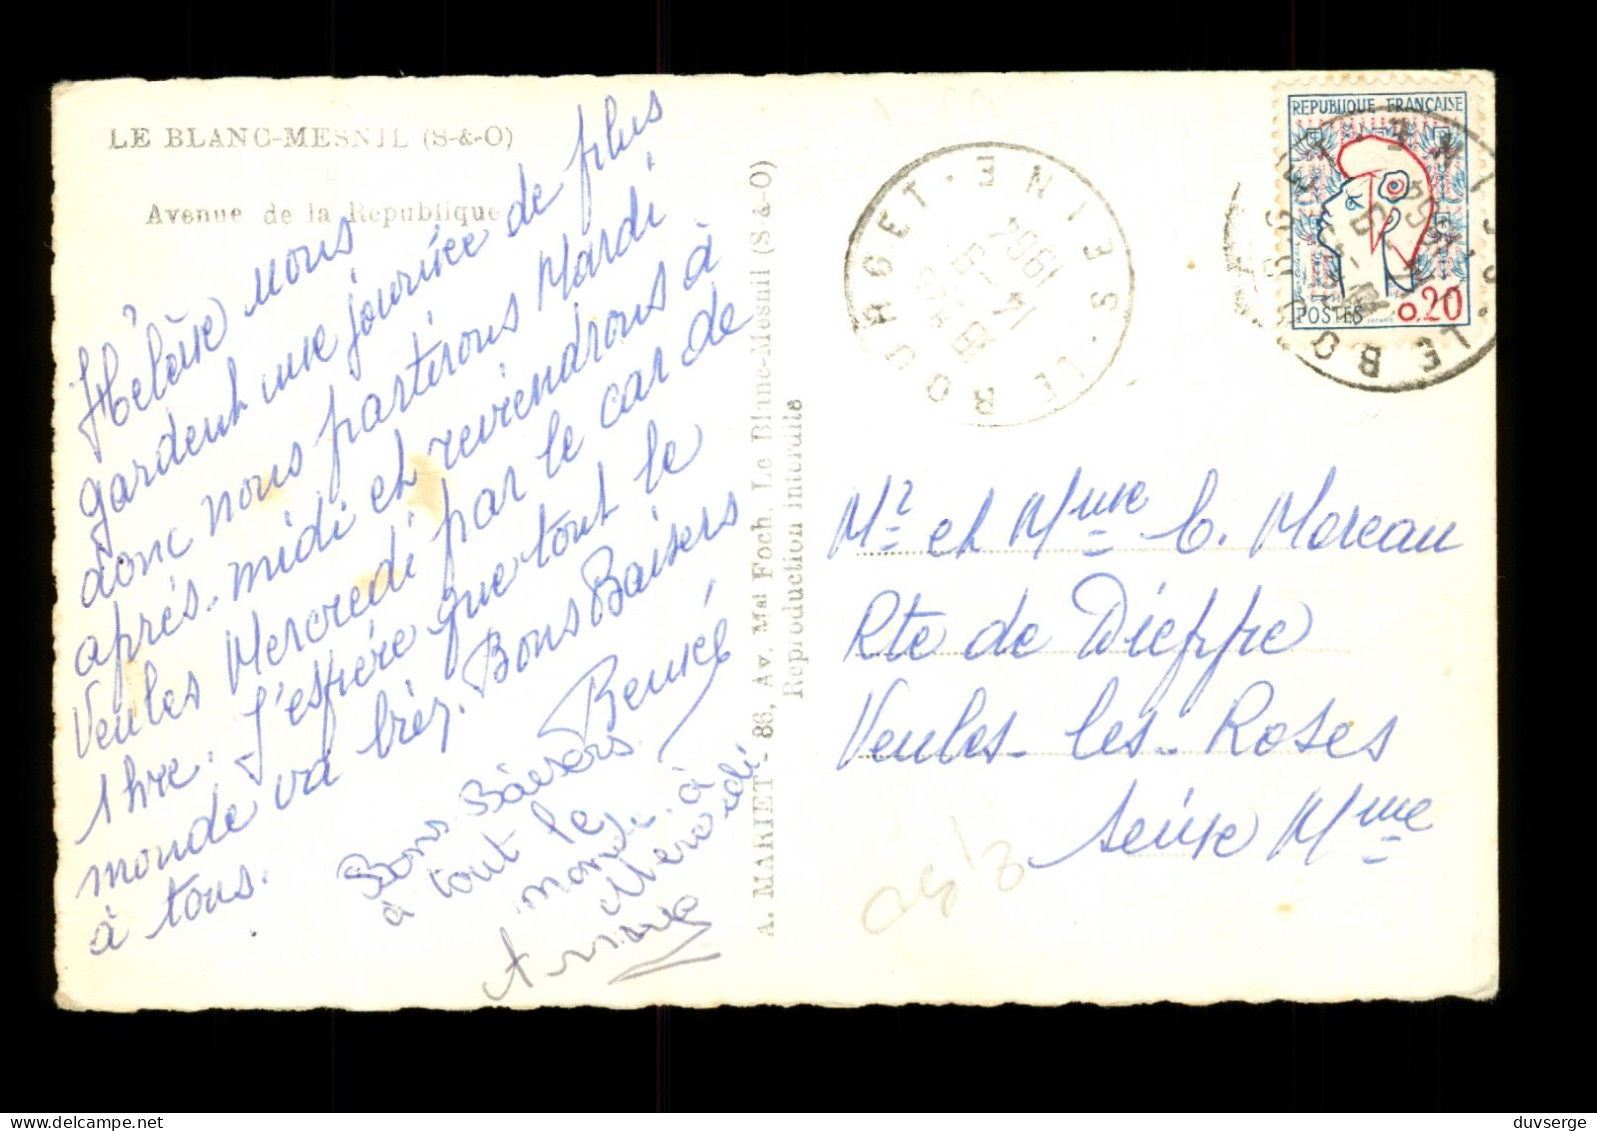 LE BLANC-MESNIL (S-&-O)
Avenue de la République
Hélène nous
gardent une journée de plus
donc nous partirons Mardi
après-midi et reviendrons à
Veules Mercredi par le car de
1 hre. J'espère que tout le
monde va bien. Bons Baisers
à tous.
Bons Baisers
à tout le
monde. à
Mercredi
A. MARIET - 86, Av. Mal Foch, Le Blanc-Mesnil (S &-O)
Reproduction interdite
LE BOURGET · SEINE
18 H
14 - 9
1964
REPUBLIQUE FRANÇAISE
POSTES 0,20
LE BOURGET · SEINE
Mr et Mme C. Moreau
Rte de Dieppe
Veules-les-Roses
Seine Mme
duvserge